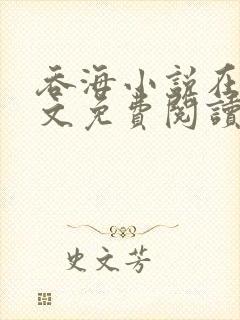 吞海小说在
文免費閱讀
史文芳